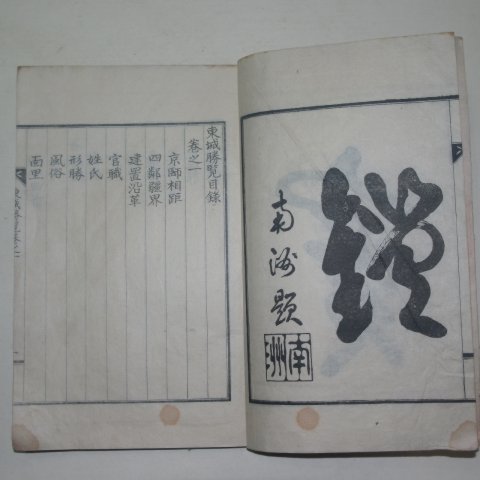 南洲題
南洲
東城勝覽目錄
卷之一
京師相距
四鄰疆界
建置沿革
官職
姓氏
形勝
風俗
面里